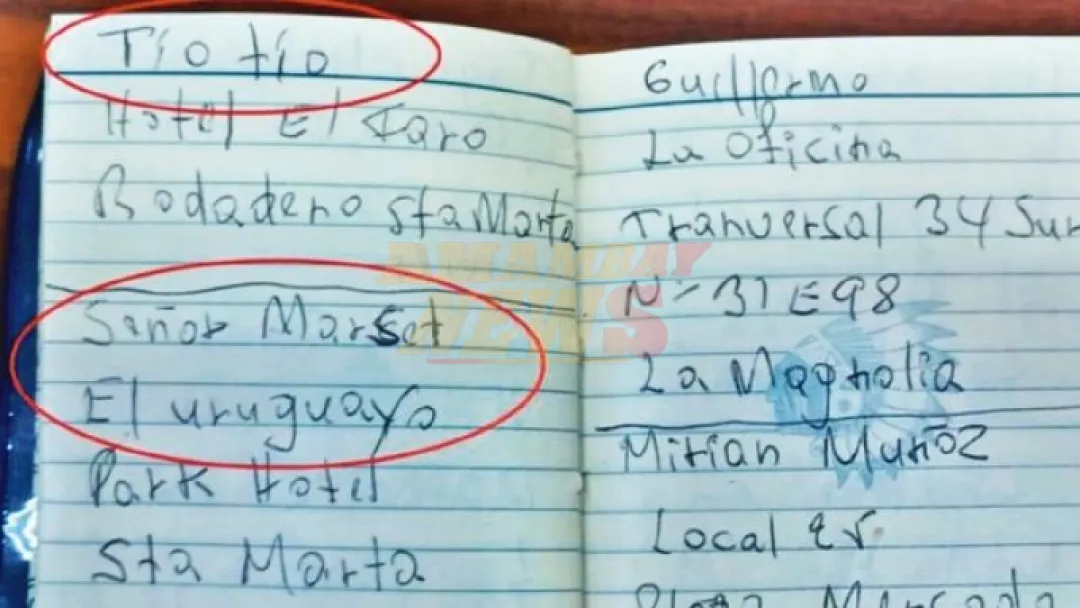 Tío tío
Hotel El Faro
Rodadero Sta Marta
Señor Marset
El uruguayo
Park Hotel
Sta Marta
Guillermo
La Oficina
Tranversal 34 Sur
N= 31 E 98
La Magnolia
Mirian Muñoz
Local
Mercado
AMAMBAY
NEWS